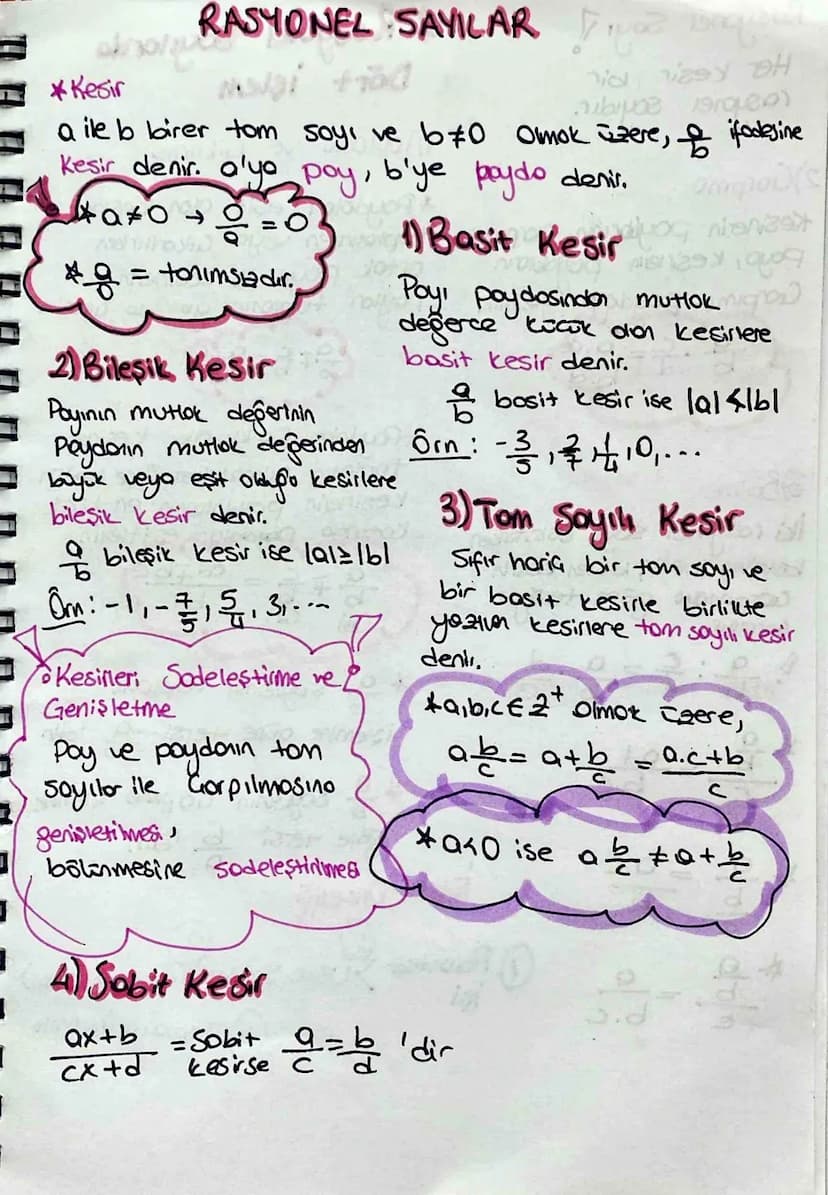 RASYONEL SAYILAR
* Kesir
a ile b birer tam sayı ve b≠0 olmak üzere, a/b ifadesine
kesir denir. a'ya pay, b'ye payda denir.
* a≠0 → 0/a = 0
* a/0 = tanımsızdır.
1) Basit Kesir
Payı paydasından mutlak
değerce küçük olan kesirlere
basit kesir denir.
a/b basit kesir ise |a|<|b|
Örn: -3/5, 2/7, 1/4, 0, ...
2) Bileşik Kesir
Payının mutlak değerinin
Paydanın mutlak değerinden
büyük veya eşit olduğu kesirlere
bileşik kesir denir.
a/b bileşik kesir ise |a|≥|b|
Örn: -1, -7/5, 5/4, 3, ...
3) Tam Sayılı Kesir
Sıfır hariç bir tam sayı ve
bir basit kesirle birlikte
yazılan kesirlere tam sayılı kesir
denir.
* a,b,c ∈ Z⁺ olmak üzere,
a b/c = a + b/c = a.c+b/c
* a<0 ise a b/c ≠ a + b/c
Kesirleri Sadeleştirme ve
Genişletme
Pay ve paydanın tam
sayılar ile çarpılmasına
genişletilmesi,
bölünmesine sadeleştirilmesi
4) Sabit Kesir
ax+b/cx+d = Sabit kesirse a/c = b/d 'dir